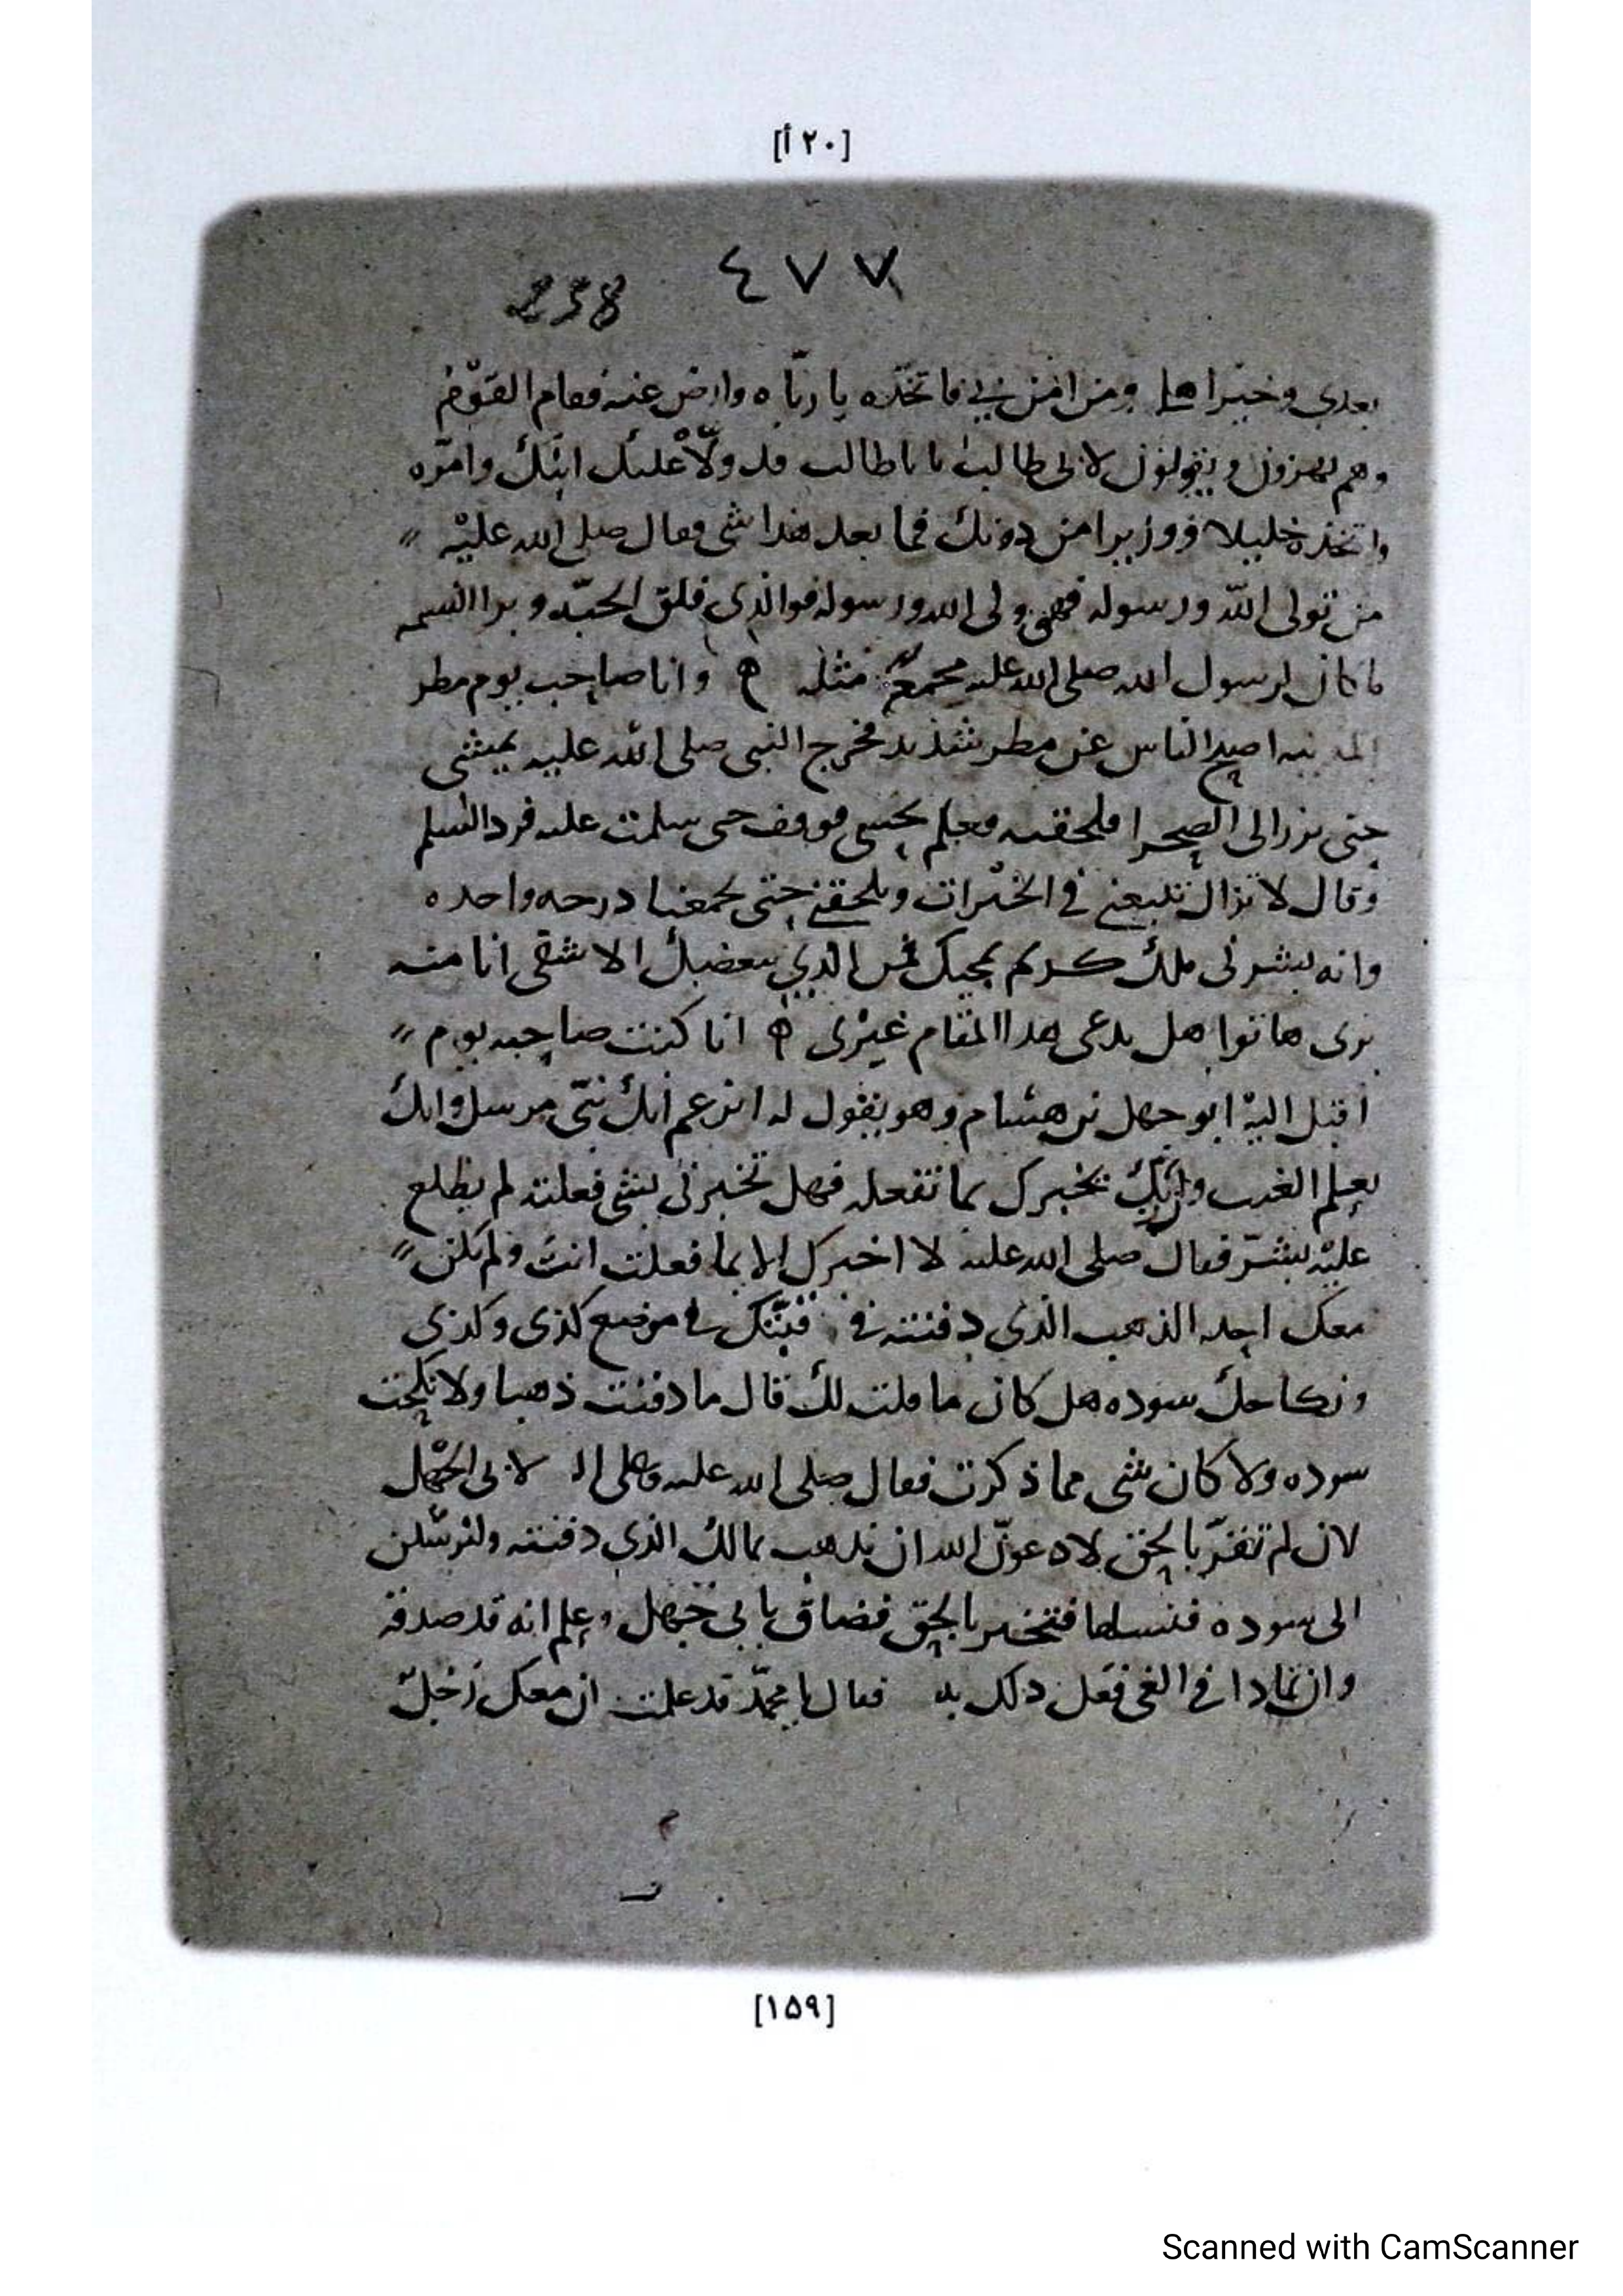 [٢٠ أ]
٤٧٧
238
بعدي وخيرا هلي ومن امن بي فاتخذه يا رباه وارض عنه فقام القوم
وهم يهزون ويقولون لابى طالب يا باطالب قد ولا عليك ابنك وامره
واتخذه خليلا ووزيرا من دونك فما بعد هذا شى فقال صلى الله عليه
من تولى الله ورسوله فهو ولى الله ورسوله فوالذى فلق الحبه وبرا النسمه
ما كان لرسول الله صلى الله عليه مثله ه وانا صاحب يوم مطر
المدينه اصبح الناس عن مطر شديد فخرج النبى صلى الله عليه يمشى
حتى برز الى الصحرا فلحقته فعلم بحسى فوقف حتى سلمت عليه فرد السلم
وقال لا تزال تتبعنى في الخيرات وتلحقني حتى تجمعنا درجه واحده
وانه يبشرنى ملك كريم بمحبك فمن الذي يبغضك الا شقى انا منه
برى هاتوا هل يدعى هذا المقام غيرى ه انا كنت صاحبه يوم
اقبل اليه ابو جهل بن هشام وهو يقول له اتزعم انك نبي مرسل وانك
تعلم الغيب وربك يخبرك بما تفعله فهل تخبرنى بشى فعلته لم يطلع
عليه بشر فقال صلى الله عليه لا اخبرك الا بما فعلت انت ولم يكن
معك احد الذهب الذى دفنته في بيتك في موضع كذى وكذى
ونكاحك سوده هل كان ما قلت لك قال ما دفنت ذهبا ولا نكحت
سوده ولا كان شى مما ذكرت فقال صلى الله عليه وعلى اله لابى الجهل
لان لم تقر بالحق لادعون الله ان يذهب بمالك الذي دفنته ولنرسلن
الى سوده فنسلها فتخبر بالحق فضاق بابي جهل وعلم انه قد صدقه
وان تمادا في الغى فعل ذلك به فقال يا محمد قد علمت ان معك رجل
[١٥٩]
Scanned with CamScanner